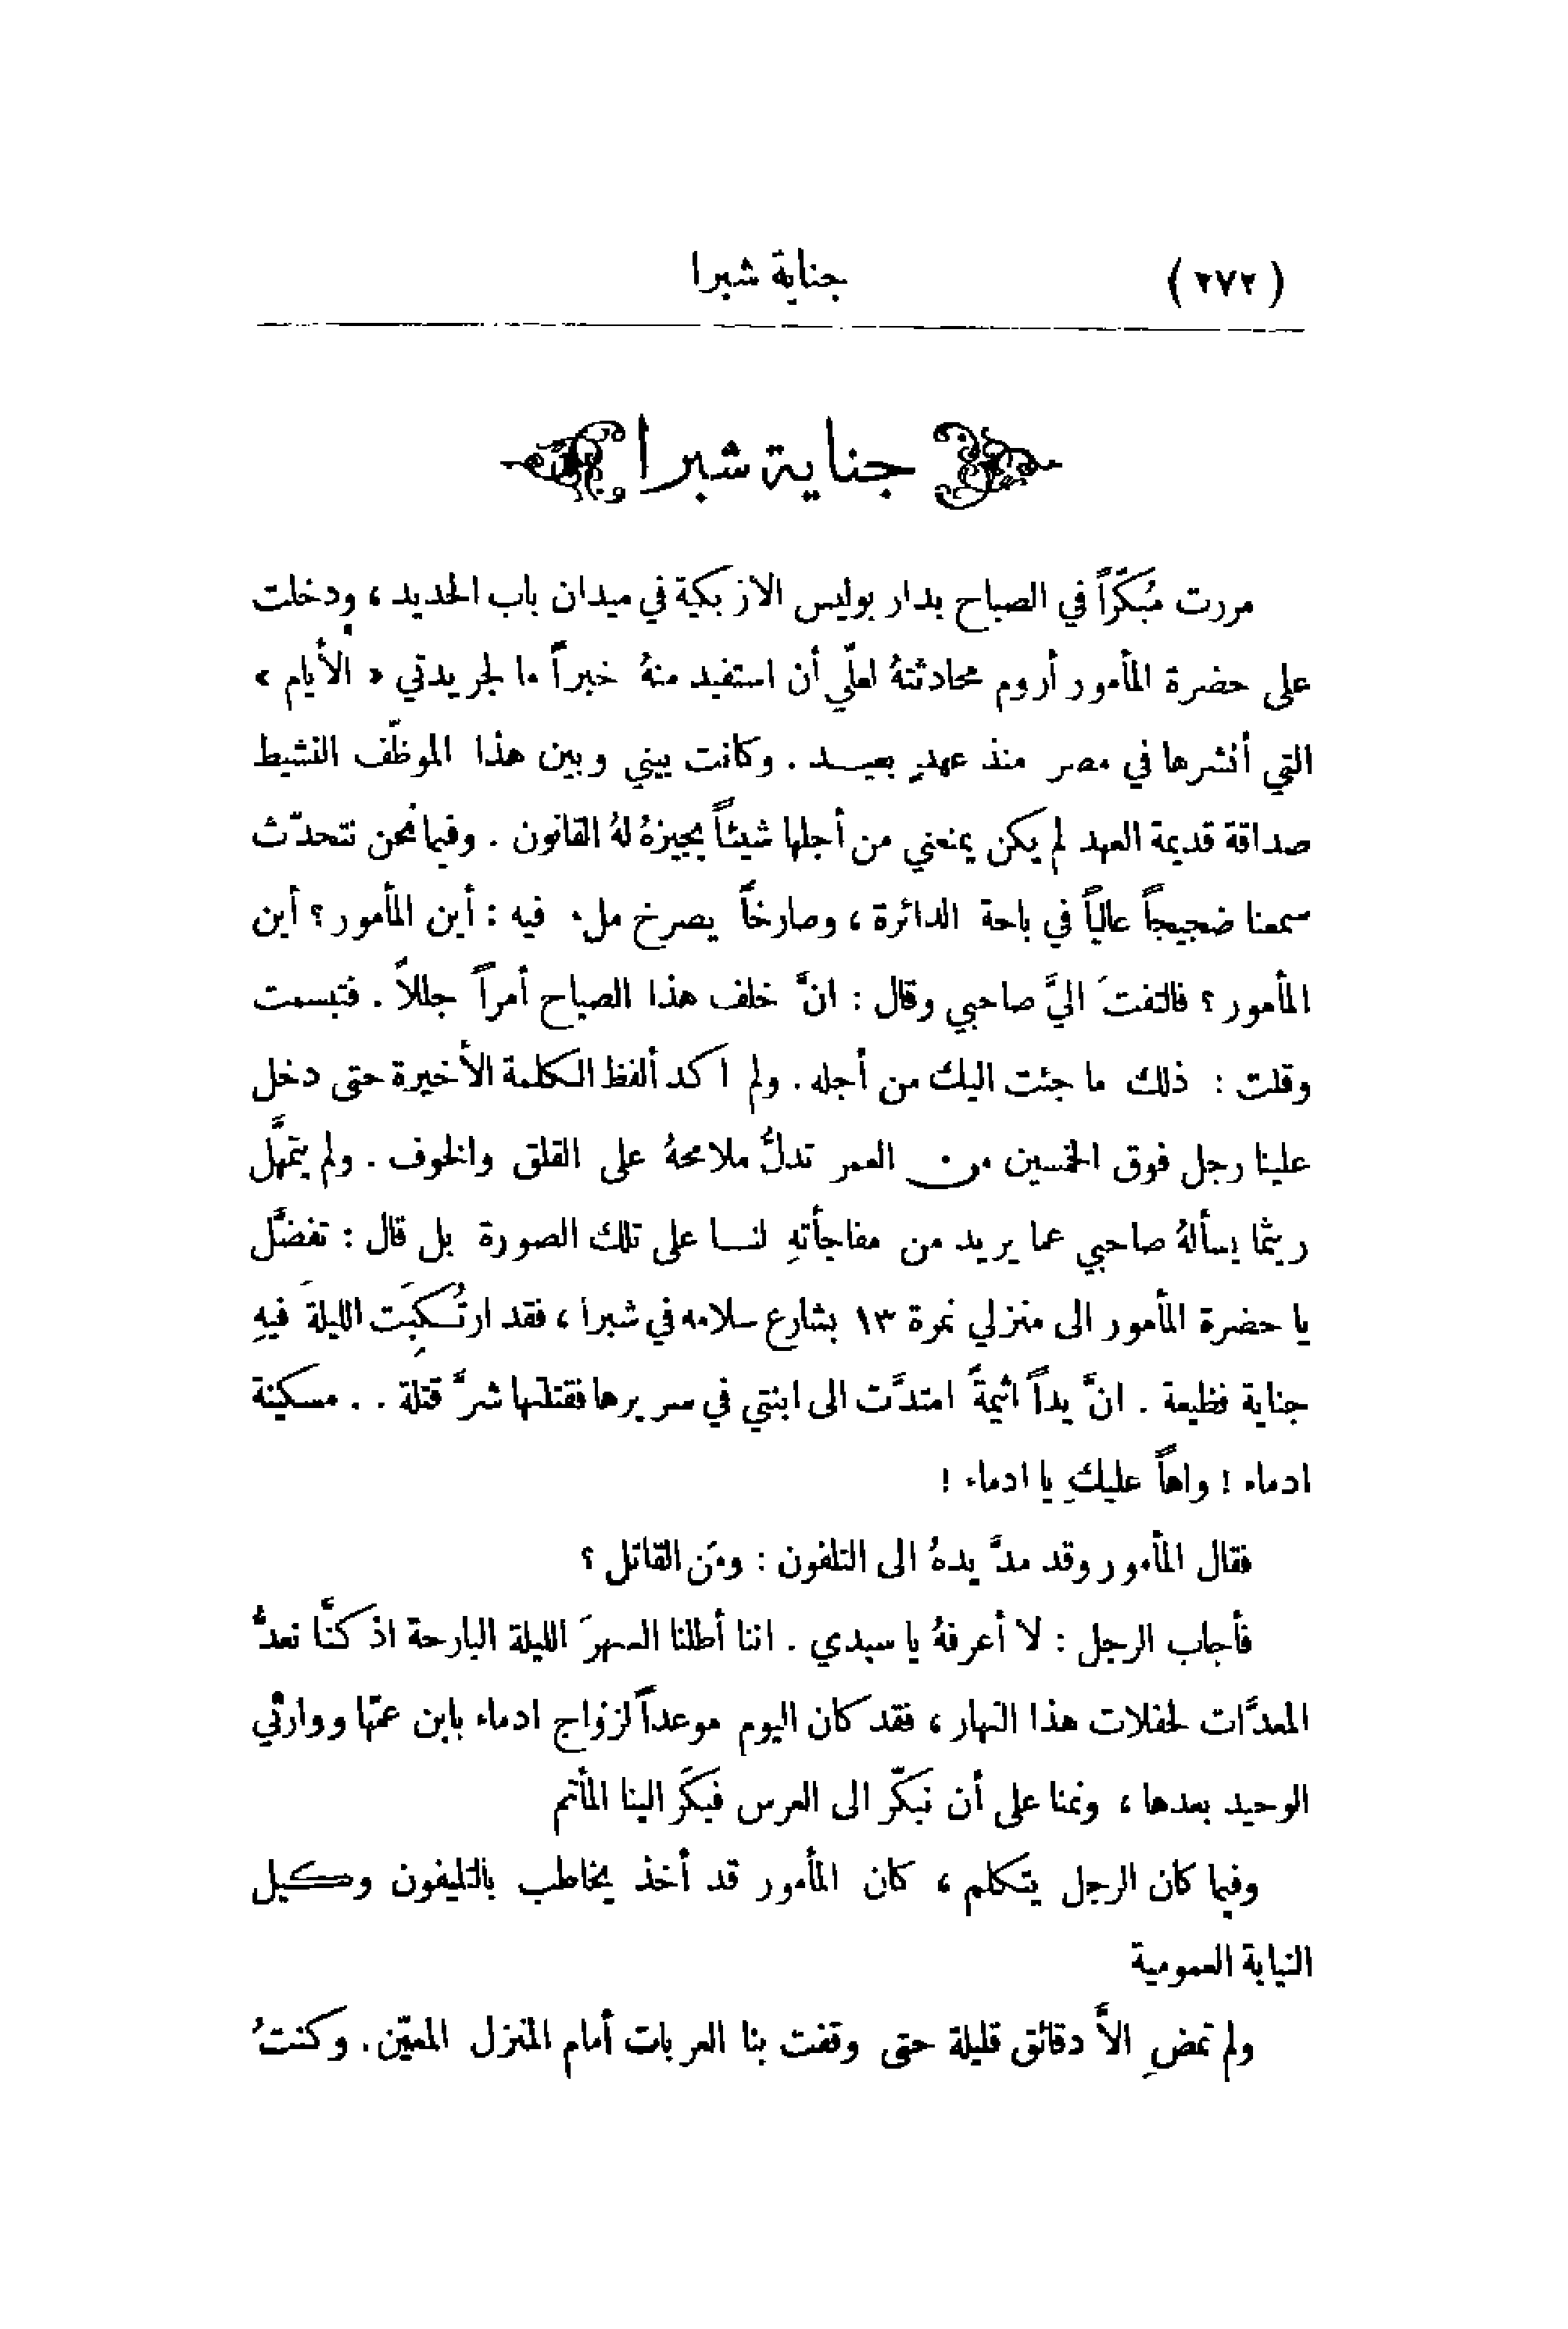 (٢٧٢) جناية شبرا
جناية شبرا
مررت مُبكّراً في الصباح بدار بوليس الازبكية في ميدان باب الحديد ، ودخلت
على حضرة المأمور أروم محادثتهُ لعلّي أن استفيد منهُ خبراً ما لجريدتي « الأيام »
التي أنشرها في مصر منذ عهدٍ بعيد . وكانت بيني وبين هذا الموظّف النشيط
صداقة قديمة العهد لم يكن يمنعني من أجلها شيئاً يجيزهُ لهُ القانون . وفيما نحن نتحدّث
سمعنا ضجيجاً عالياً في باحة الدائرة ، وصارخاً يصرخ ملء فيه : أين المأمور ؟ أين
المأمور ؟ فالتفتَ اليَّ صاحبي وقال : انَّ خلف هذا الصباح أمراً جللاً . فتبسمت
وقلت : ذلك ما جئت اليك من أجله . ولم اكد ألفظ الكلمة الأخيرة حتى دخل
علينا رجل فوق الخمسين من العمر تدلُّ ملامحهُ على القلق والخوف . ولم يتمهَّل
ريثما يسألهُ صاحبي عما يريد من مفاجأتهِ لنا على تلك الصورة بل قال : تفضَّل
يا حضرة المأمور الى منزلي نمرة ١٣ بشارع سلامه في شبرا ، فقد ارتُكِبَت الليلةَ فيهِ
جناية فظيعة . انَّ يداً اثيمةً امتدَّت الى ابنتي في سريرها فقتلتها شرَّ قتلة . . مسكينة
ادماء ! واهاً عليكِ يا ادماء !
فقال المأمور وقد مدَّ يدهُ الى التلفون : ومَن القاتل ؟
فأجاب الرجل : لا أعرفهُ يا سيدي . اننا أطلنا السهرَ الليلة البارحة اذ كنَّا نعدُّ
المعدَّات لحفلات هذا النهار ، فقد كان اليوم موعداً لزواج ادماء بابن عمّها ووارثي
الوحيد بعدها ، ونمنا على أن نبكّر الى العرس فبكَّر الينا المأتم
وفيما كان الرجل يتكلم ، كان المأمور قد أخذ يخاطب بالتليفون وكيل
النيابة العمومية
ولم تمضِ الاَّ دقائق قليلة حتى وقفت بنا العربات أمام المنزل المعيّن . وكنتُ